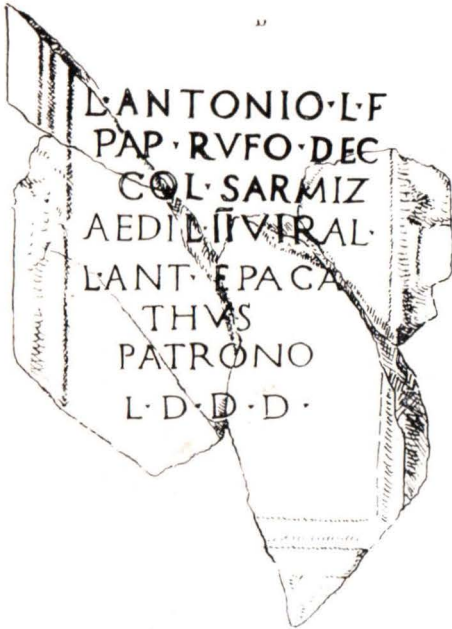 L·ANTONIO·L·F
PAP·RVFO·DEC
COL·SARMIZ
AEDIL IIVIRAL·
L·ANT·EPACA
THVS
PATRONO
L·D·D·D·